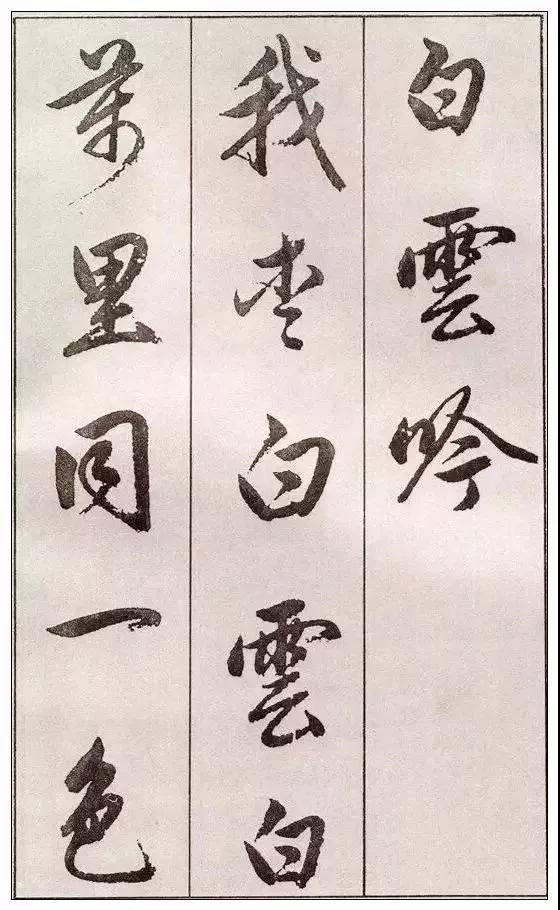 白雲吟
我愛白雲白
萬里同一色